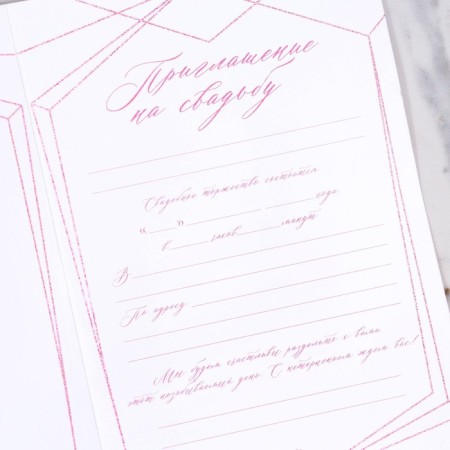 Приглашение
на свадьбу
Свадебное торжество состоится
"___"______________года
в____часов____минут
В
По адресу
Мы будем счастливы разделить с вами
этот незабываемый день. С нетерпением ждем вас!